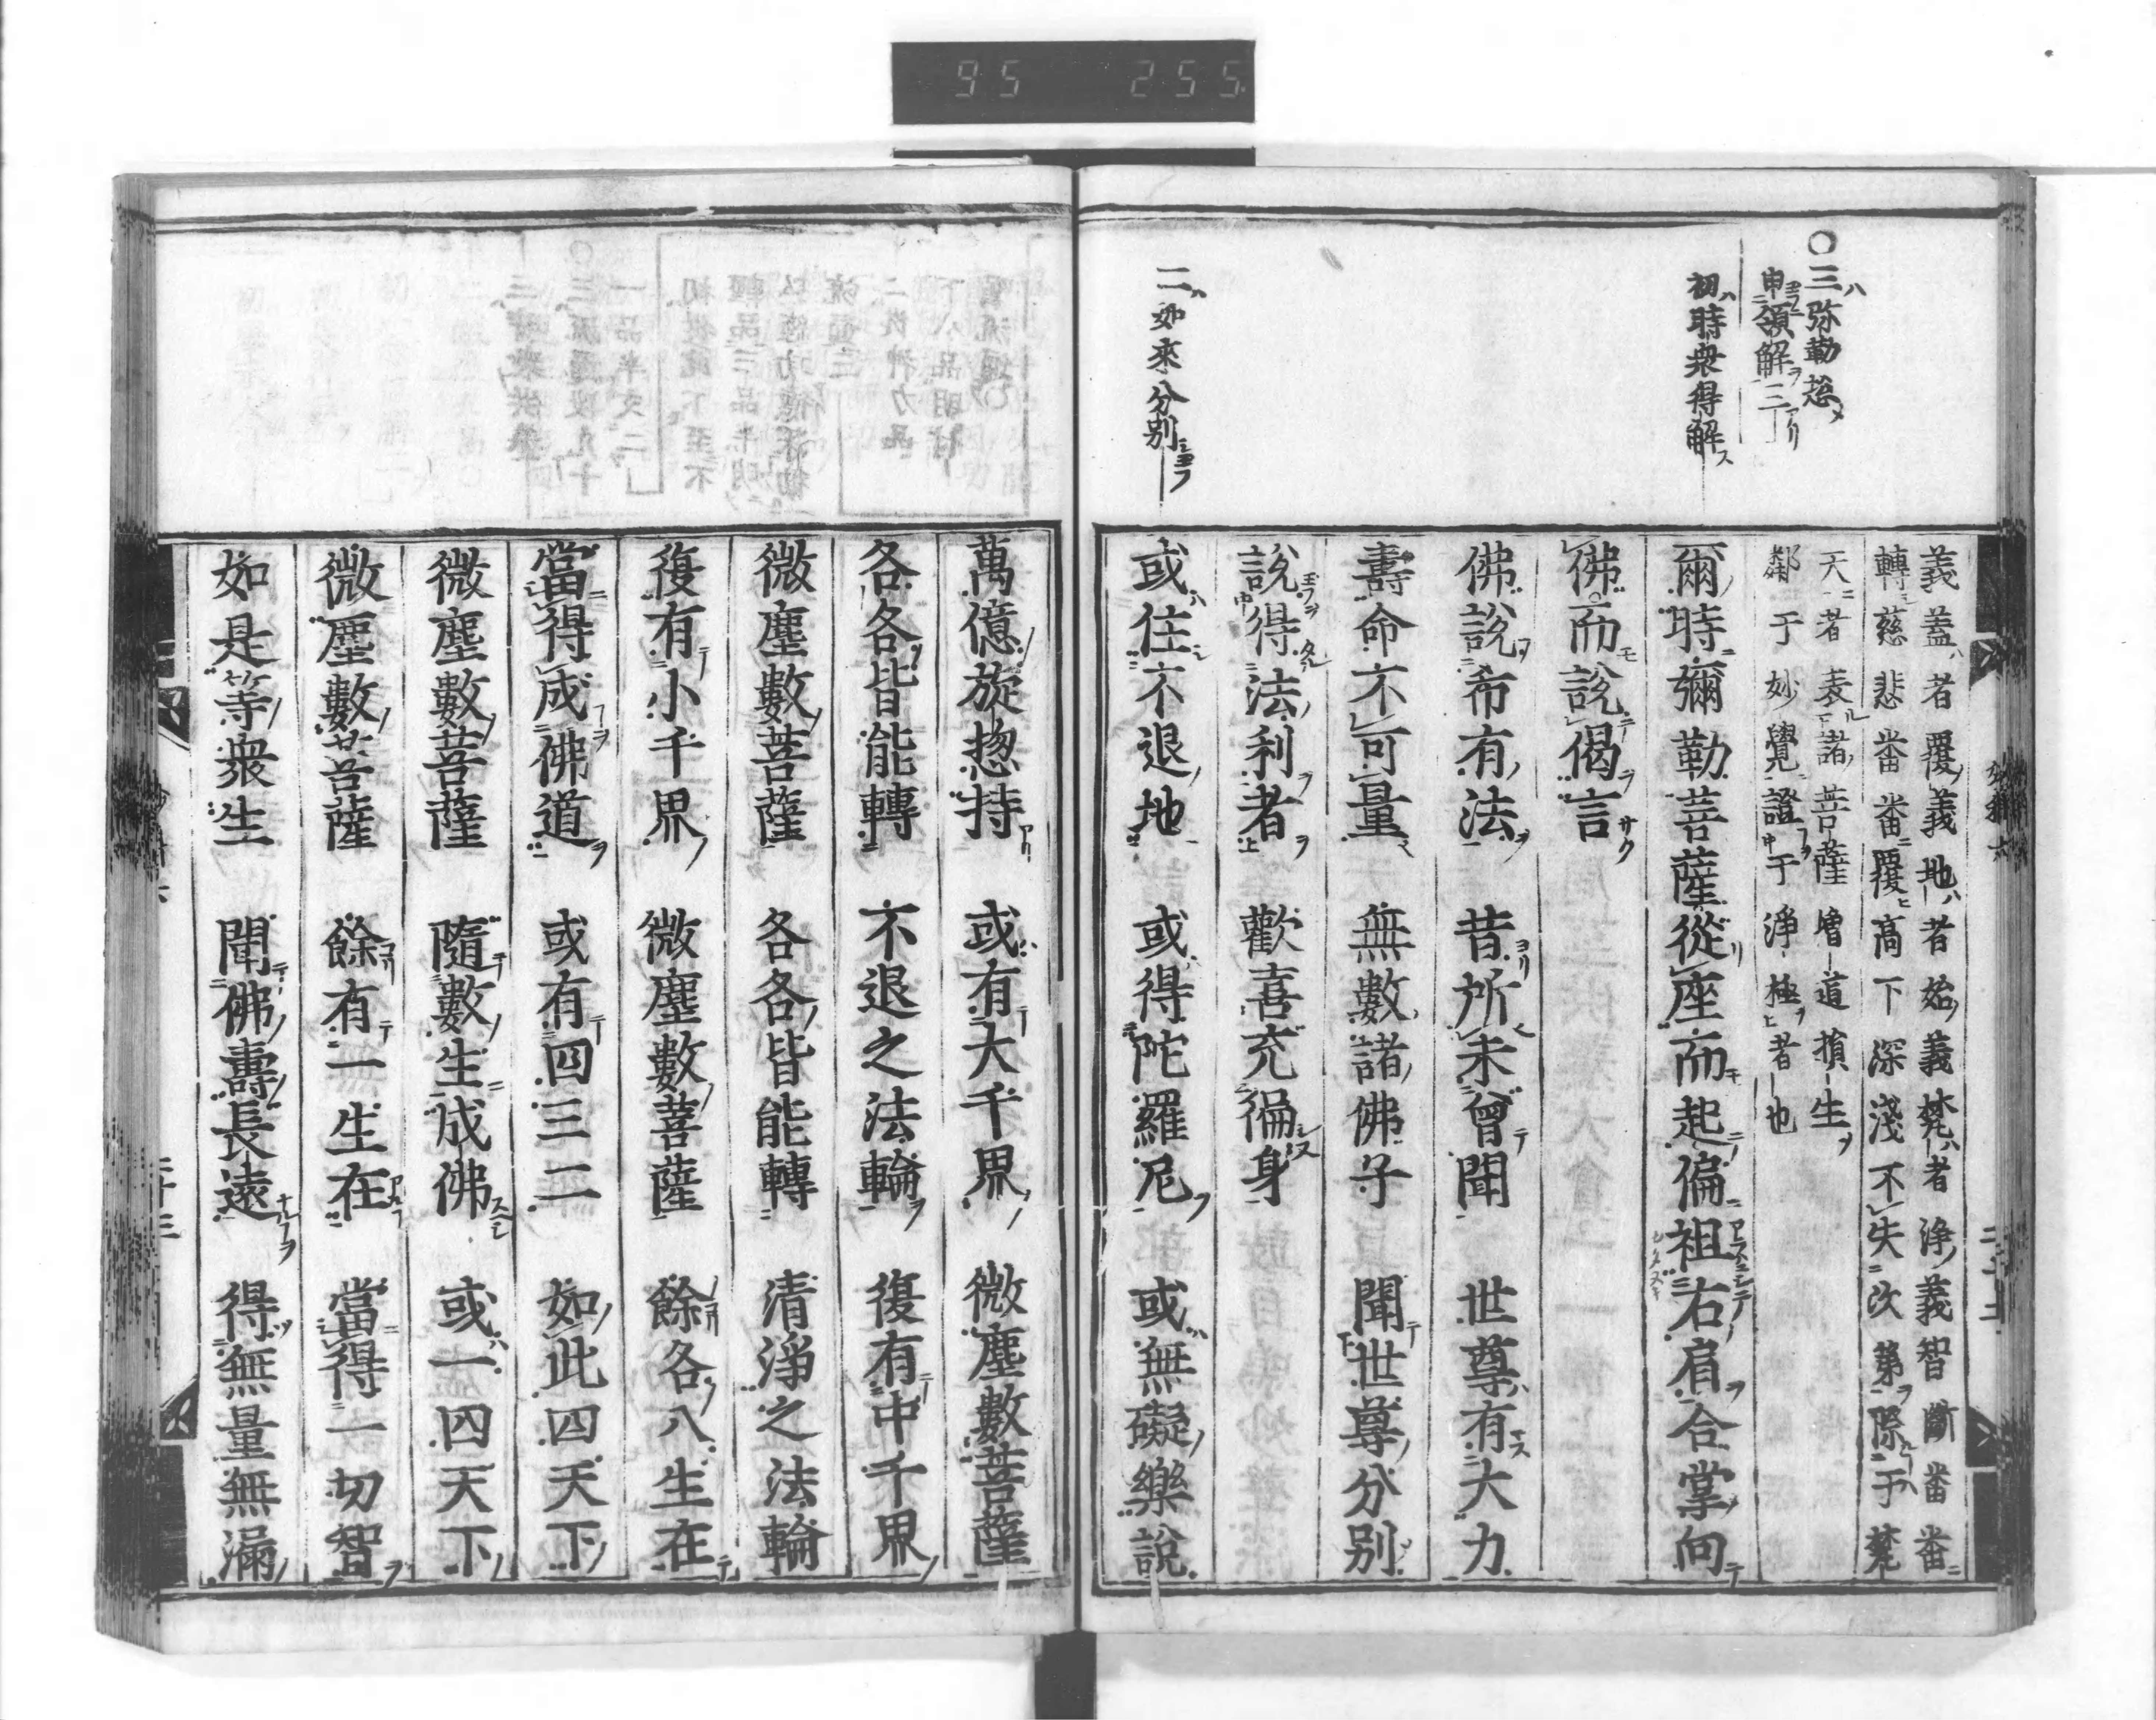 95 255
〇三弥勒惣
申領解二
初時衆得解
二如來分別
義蓋者覆義地者始義梵者淨義智斷番番
轉慈悲番番覆高下深淺不失次第際于梵
天者表諸菩薩增道損生
鄰于妙覺證于淨極者也
爾時彌勒菩薩從座而起偏袒右肩合掌向
佛而說偈言
佛說希有法 昔所未曾聞 世尊有大力
壽命不可量 無數諸佛子 聞世尊分別
說得法利者 歡喜充徧身
或住不退地 或得陀羅尼 或無礙樂說
萬億旋惣持 或有大千界 微塵數菩薩
各各皆能轉 不退之法輪 復有中千界
微塵數菩薩 各各皆能轉 清淨之法輪
復有小千界 微塵數菩薩 餘各八生在
當得成佛道 或有四三二 如此四天下
微塵數菩薩 隨數生成佛 或一四天下
微塵數菩薩 餘有一生在 當得一切智
如是等衆生 聞佛壽長遠 得無量無漏